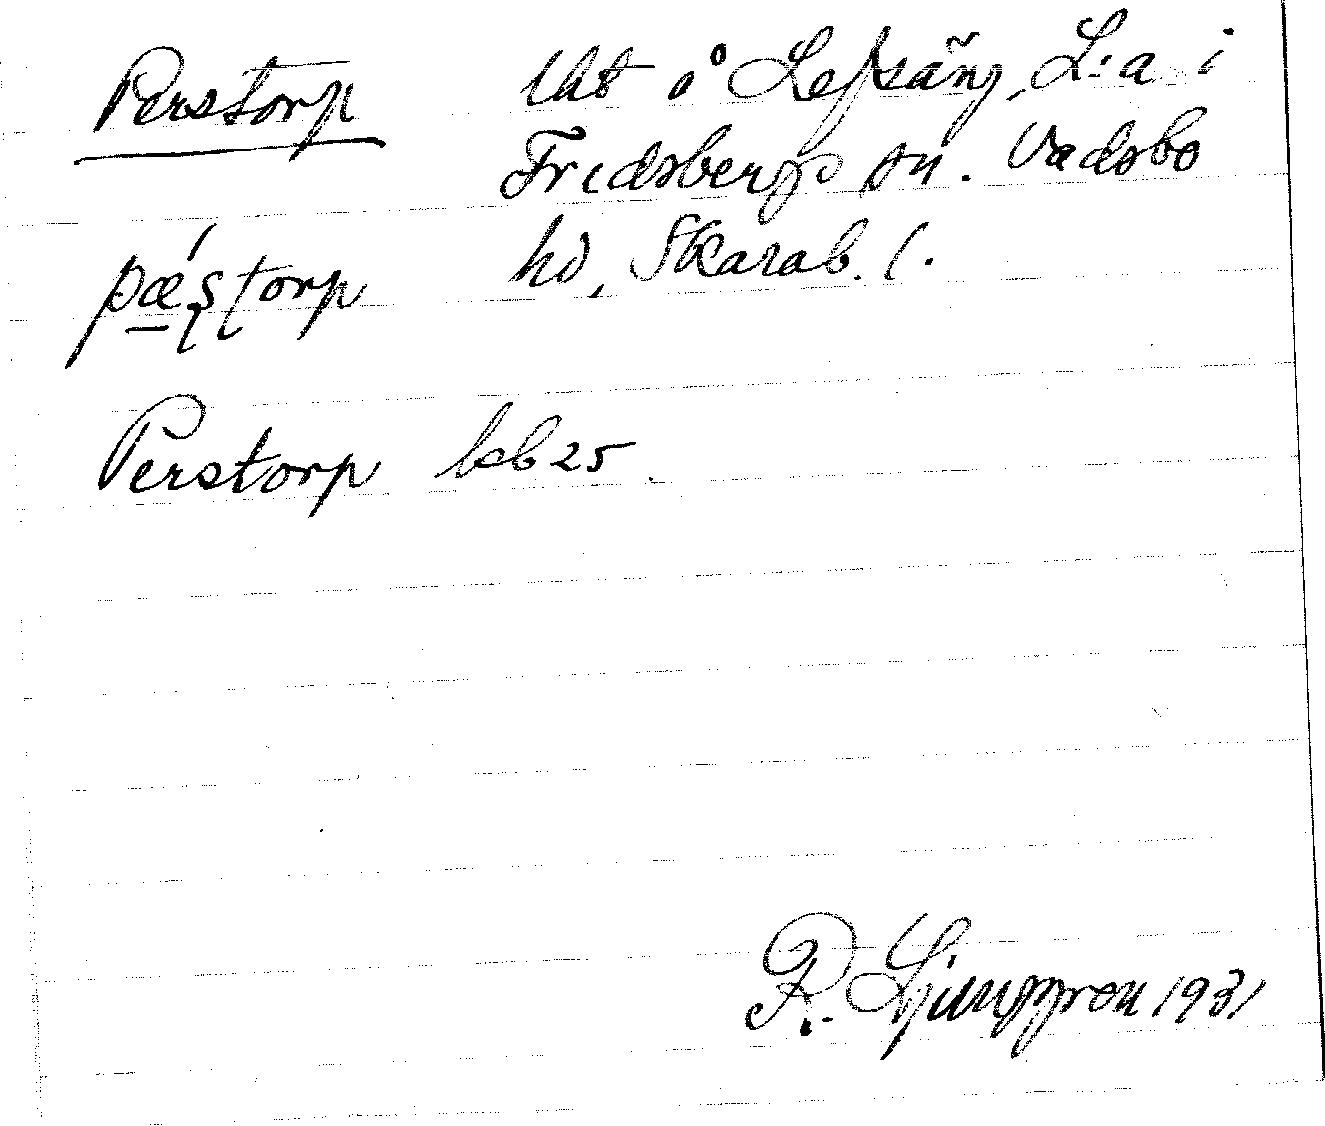 Perstorp lht å Lefsäng, L:a i
Fredsbergs sn. Vadsbo
hd, Skarab. l.
pǽştorp
Perstorp hsb 25.
R. Ljunggren 1931